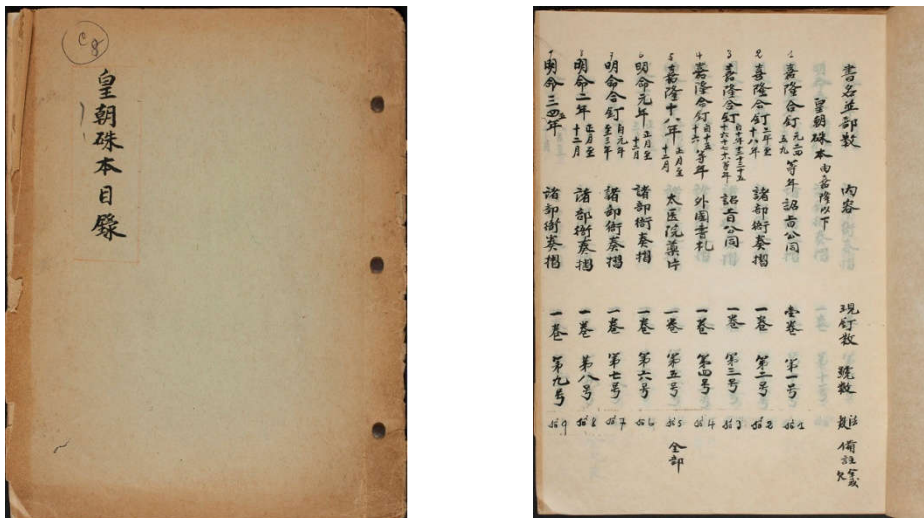 C8
皇朝硃本目錄
書名並部數 內容 現釘数 號数 備註
皇朝硃本 內嘉隆以下
1 嘉隆合釘 等年 詔旨公同 壹卷 第一号 số 1
2 嘉隆合釘 二年至十八年 諸部衙奏摺 一卷 第二号 số 2
3 嘉隆合釘 等年 詔旨公同 一卷 第三号 số 3
4 嘉隆合釘 等年 外國書札 一卷 第四号 số 4
5 嘉隆十八年 正月至十二月 太医院藥片 一卷 第五号 số 5 全部
6 明命元年 正月至十二月 諸部衙奏摺 一卷 第六号 số 6
7 明命合釘 自元年至三年 諸部衙奏摺 一卷 第七号 số 7
8 明命二年 正月至十二月 諸部衙奏摺 一卷 第八号 số 8
9 明命三四年 諸部衙奏摺 一卷 第九号 số 9